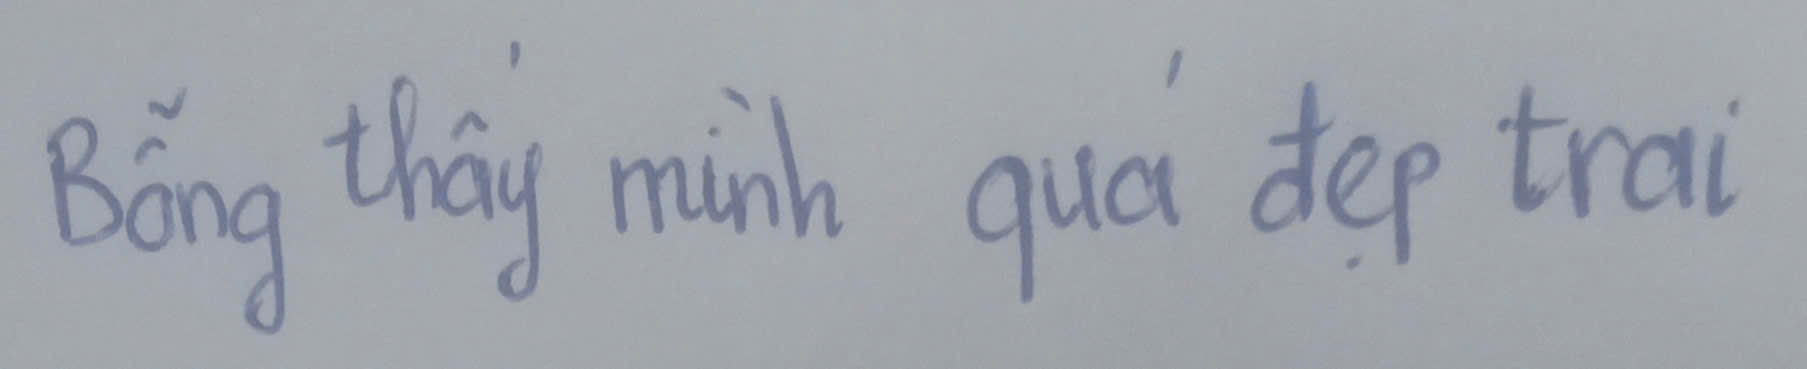 Bỗng thấy mình quá đẹp trai